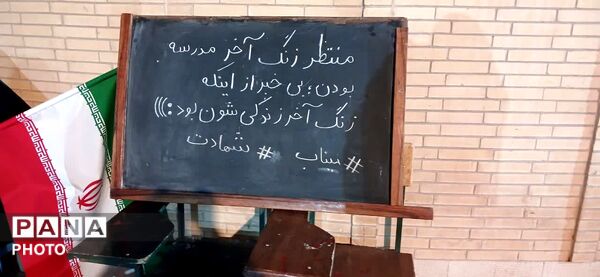 منتظر زنگ آخر مدرسه
بودن؛ بی خبر از اینکه
زنگ آخر زندگی شون بود :(((
# میناب # شهادت
PANA
PHOTO